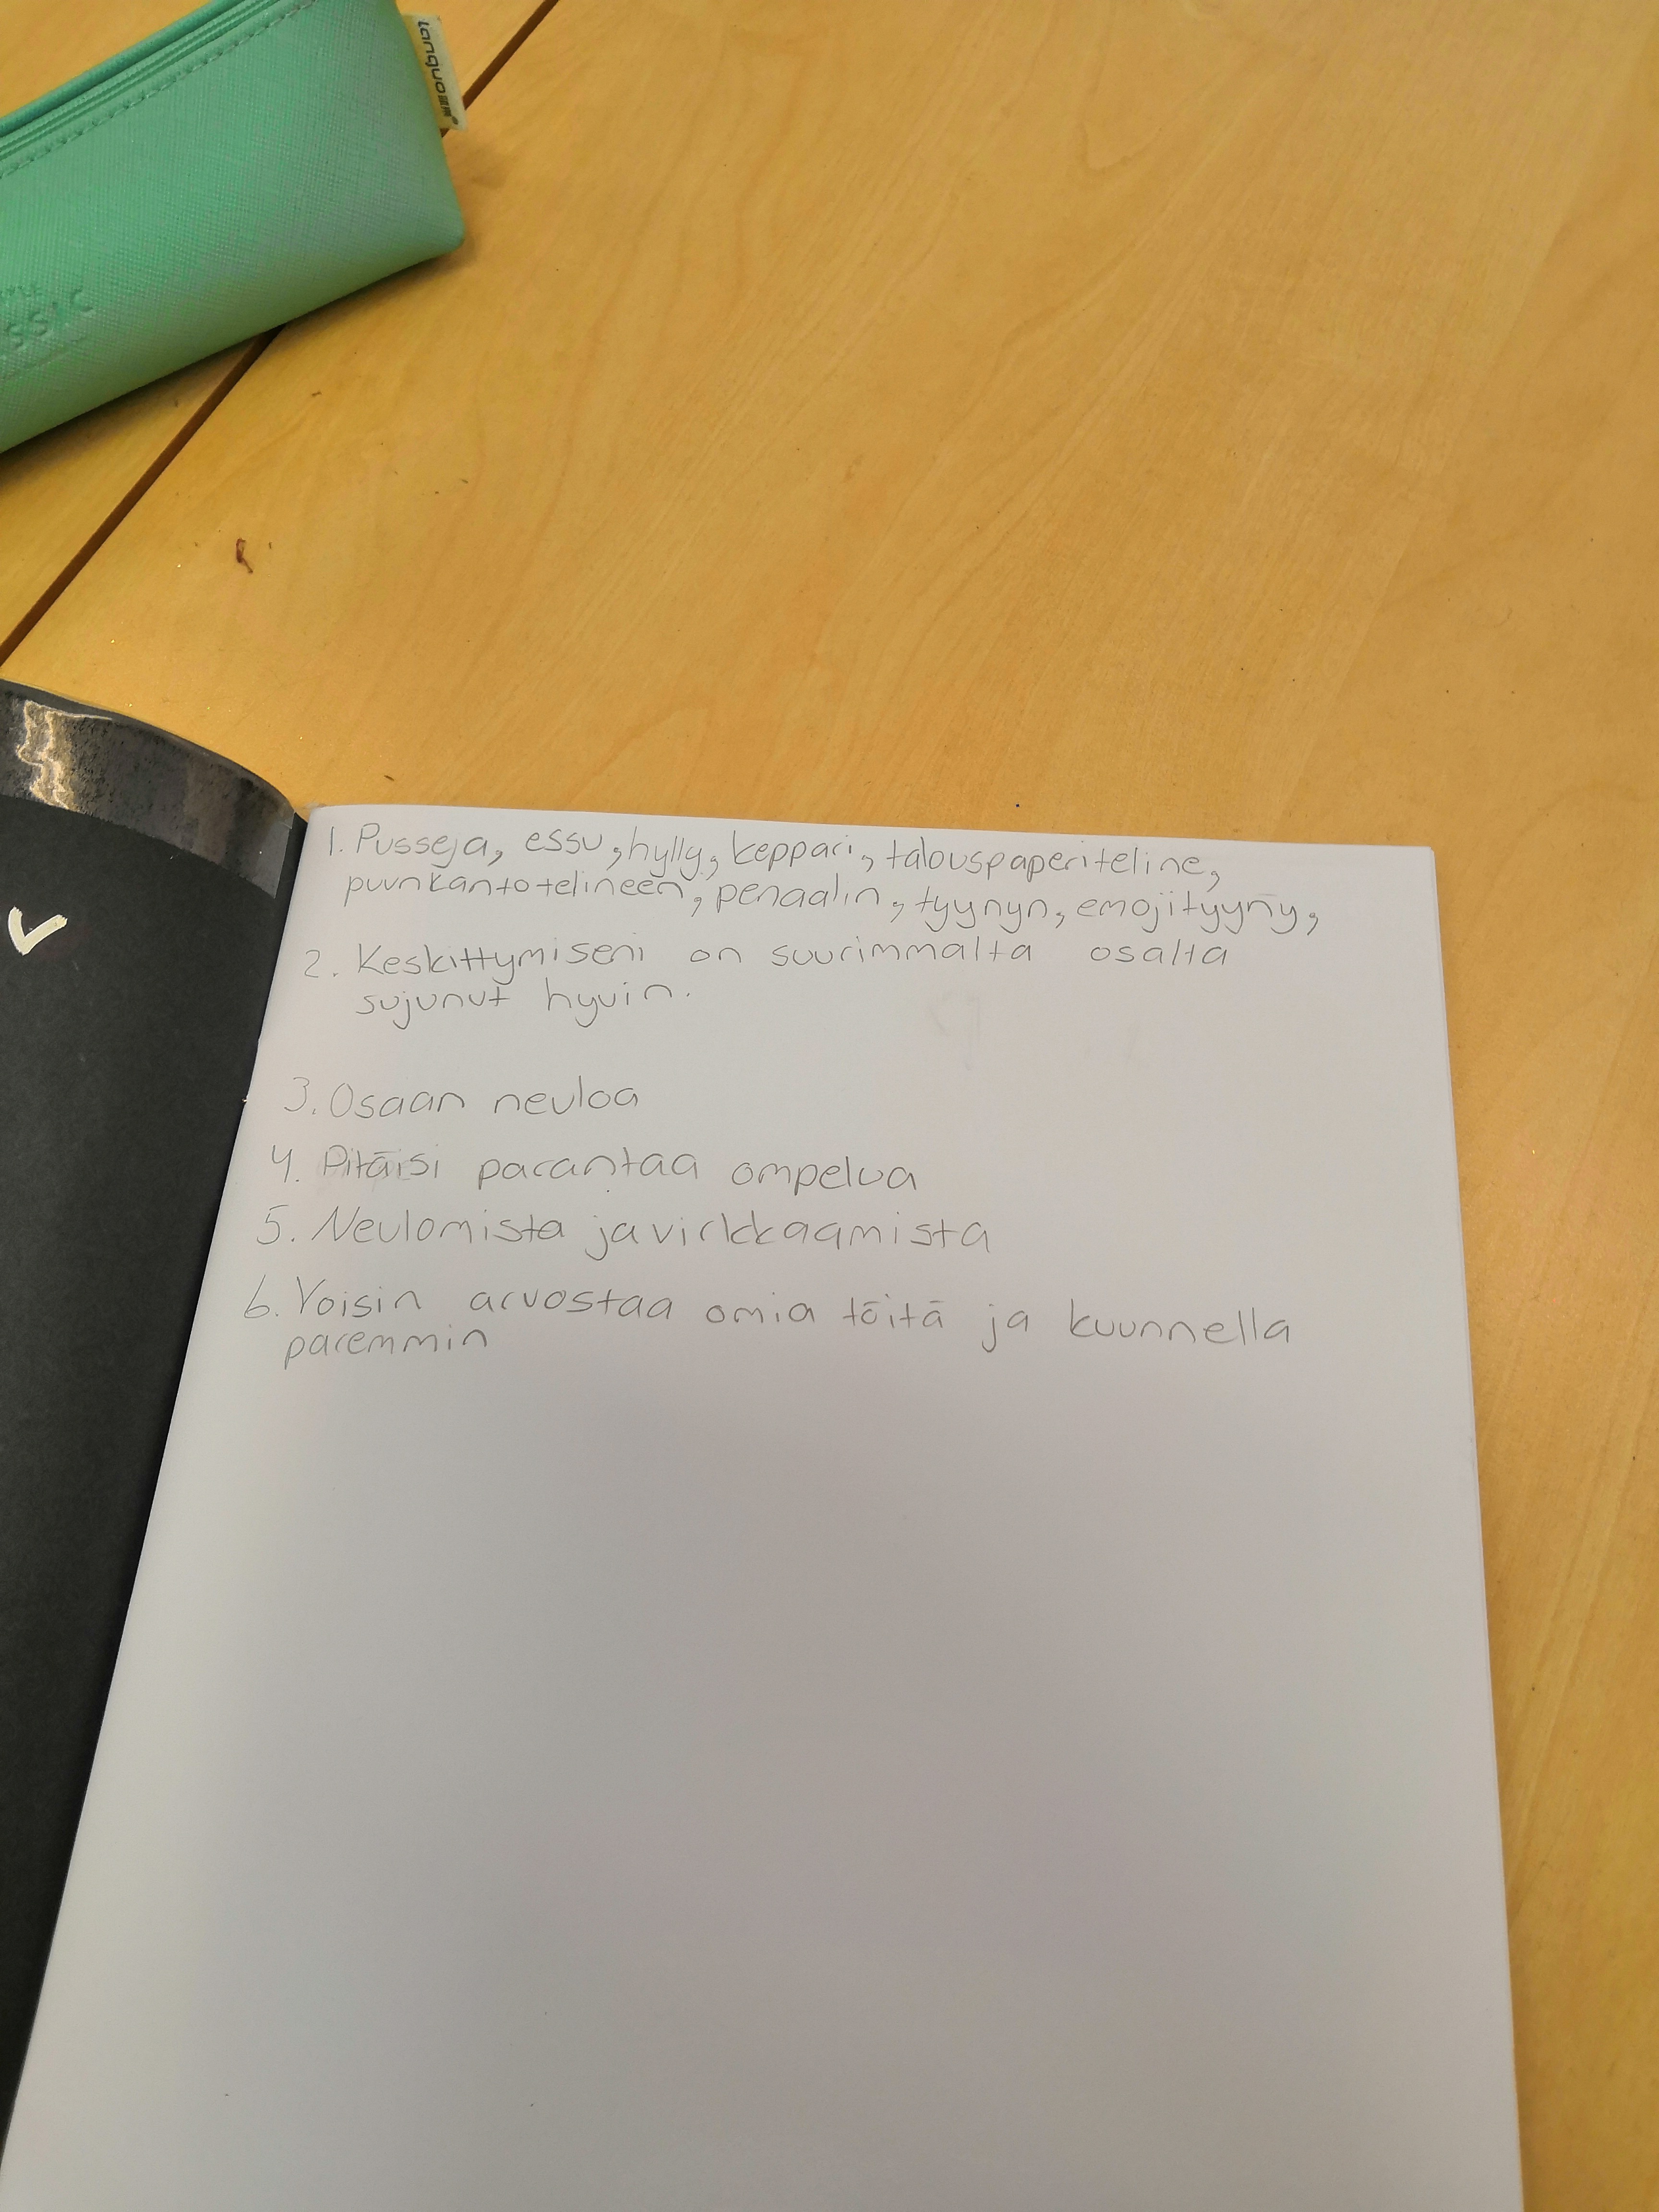 1. Pusseja, essu, hylly, keppari, talouspaperiteline,
puunkantotelineen, penaalin, tyynyn, emojityyny,
2. Keskittymiseni on suurimmalta osalta
sujunut hyvin.
3. Osaan neuloa
4. Pitäisi parantaa ompelua
5. Neulomista ja virkkaamista
6. Voisin arvostaa omia töitä ja kuunnella
paremmin